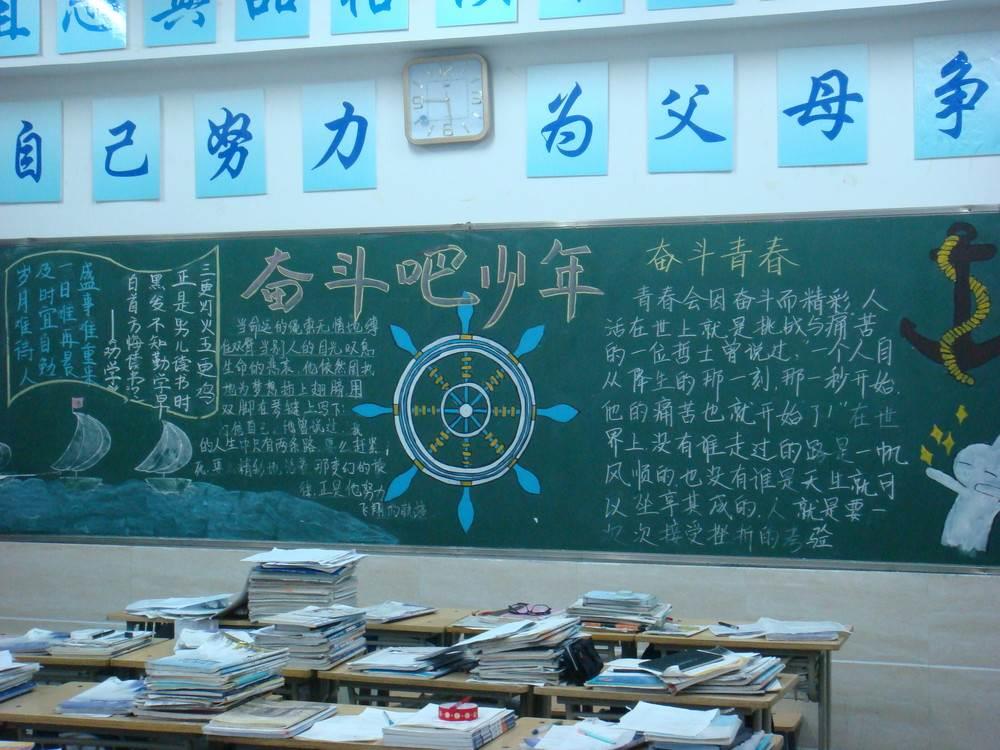 自己努力 为父母争
奋斗吧少年
奋斗青春
三更灯火五更鸡
正是男儿读书时
黑发不知勤学早
白首方悔读书迟
——劝学
盛年难重来
一日难再晨
及时宜自勉
岁月难待人
当命运的绳索无情地缚
住双臂 当别人的目光叹息
生命的悲哀, 他依然固执
地为梦想插上翅膀 用
双脚在琴键上写下:
的人生中只有两条路 要么赶紧
死 要么精彩地活着
正是他努力
飞翔的
青春会因奋斗而精彩 人
活在世上就是挑战与痛苦
的一位哲士曾说过, 一个人自
从降生的那一刻, 那一秒开始,
他的痛苦也就开始了!"在世
界上没有谁走过的路是一帆
风顺的也没有谁是天生就可
以坐享其成的, 人就是要一
次次接受挫折的考验